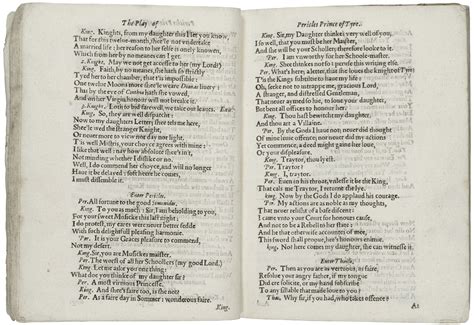 The Play of
King. Knights, from my daughter this I let you know
That for this twelue-month, shee'le not vndertake
A married life : her reason to her selfe is onely knowne,
Which from her by no meanes can I get.
2. Knight. May we not get accesse to her (my Lord?)
King. Faith, by no meanes, she hath so strictly
Tyed her to her chamber, that it is impossible:
One twelue Moones more shee'le weare Dianas liuery :
This by the eye of Cinthia hath she vowed,
And on her Virgin honour will not breake it.
3. Knight. Loth to bid farewell, we take our leaues. Exit
King. So, they are well dispatcht :
Now to my daughters Letter; she tels me here,
Shee'le wed the stranger Knight,
Or neuer more to view nor day nor light.
T'is well Mistris, your choice agrees with mine :
I like that well : nay how absolute shee's in't,
Not minding whether I dislike or no.
Well, I do commend her choice, and will no longer
Haue it be delayed : soft heere he comes,
I must dissemble it.
Enter Pericles.
Per. All fortune to the good Symonides.
King. To you as much : Sir, I am beholding to you,
For your sweet Musicke this last night :
I do protest, my eares were neuer better fedde
With such delightfull pleasing harmonie.
Per. It is your Graces pleasure to commend,
Not my desert.
King. Sir, you are Musickes maister.
Per. The worst of all her Schollers (my good Lord.)
King. Let me aske you one thing :
What doe you thinke of my daughter sir ?
Per. A most vertuous Princesse.
King. And shee's faire too, is she not?
Per. As a faire day in Sommer : wonderous faire.
King.
Pericles Prince of Tyre.
King. Sir, my Daughter thinkes very well of you,
I so well, that you must be her Maister,
And she will be your Scholler; therefore looke to it.
Per. I am vnworthy to be her Schoolemaister.
King. Shee thinkes not so : peruse this writing else.
Per. What's here, a letter, that she loues the knight of Tyre?
T'is the Kings subtiltie to haue my life :
Oh, seeke not to intrappe me, gracious Lord,
A stranger, and distressed Gentleman,
That neuer aymed hie, to loue your daughter,
But bent all offices to honour her.
King. Thou hast bewitcht my daughter,
And thou art a Villaine.
Per. By the Gods I haue not, neuer did thought
Of mine leuie offence; nor neuer did my actions
Yet commence a deede might gaine her loue,
Or your displeasure.
King. Traytor, thou lyest.
Per. Traytor?
King. I, traytor.
Per. Euen in his throat, vnlesse it be the King,
That cals me Traytor, I returne the lye.
King. Now by the Gods I do applaud his courage.
Per. My actions are as noble as my thoughts,
That neuer relisht of a base discent :
I came vnto your Court for honours cause,
And not to be a Rebell to her state :
And he that otherwise accounts of mee,
This sword shall prooue, hee's honours enemie.
King. No? here comes my daughter, she can witnesse it.
Enter Thaisa.
Per. Then as you are as vertuous, as faire,
Resolue your angry father, if my tongue
Did ere solicite, or my hand subscribe
To any sillable that made loue to you ?
Thai. Why sir, if you had, who takes offence?